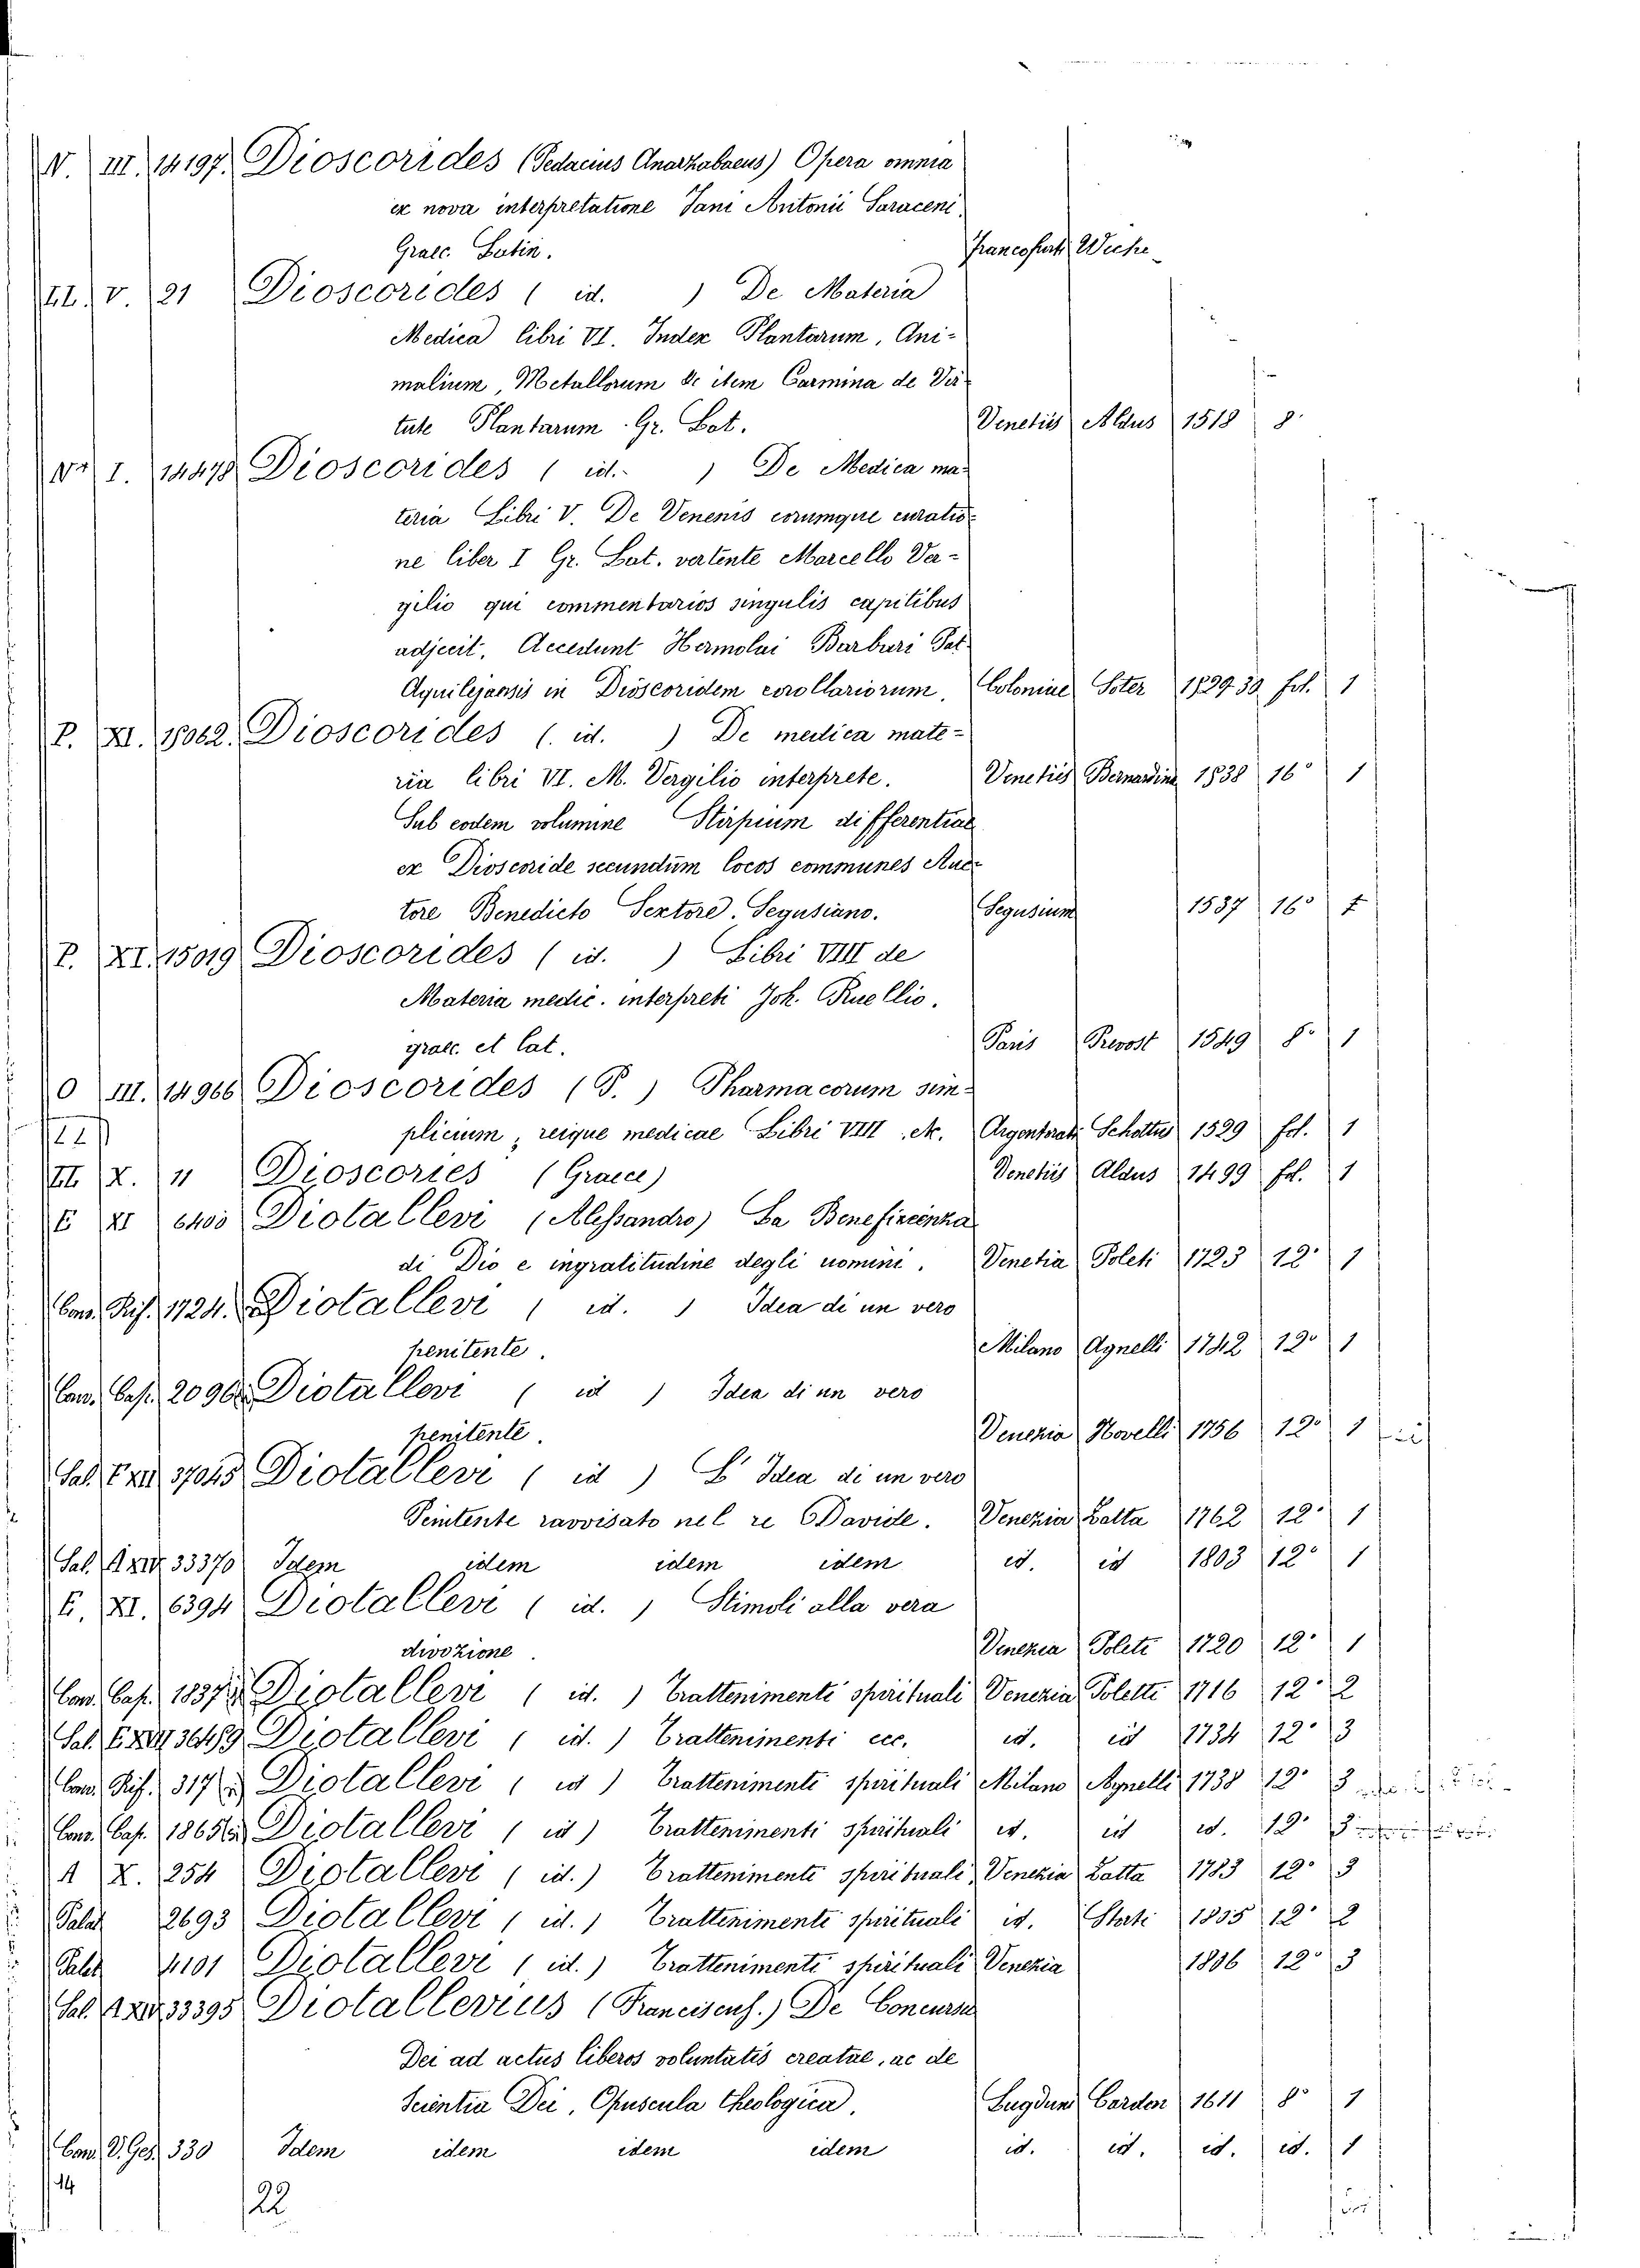 V. III. 14197. Dioscorides (Pedacius Anarzabaeus) Opera omnia
ex nova interpretatione Jani Antonii Saraceni,
Graec. Latin. Francofurti Weche
V. 21 Dioscorides ( id. ) De Materia
Medica libri VI. Index Plantarum, Ani-
malium, Metallorum &c item Carmina de Vir-
tute Plantarum Gr. Lat. Venetiis Aldus 1518 8°
I. 14478 Dioscorides ( id. ) De Medica ma-
teria Libri V. De Venenis eorumque curatio-
ne liber I Gr. Lat. vertente Marcello Ver-
gilio qui commentarios singulis capitibus
adjecit. Accedunt Hermolai Barbari Pat.
Aquilejensis in Dioscoridem corollariorum. Coloniae Soter 1529 30 fol. 1
P. XI. 15062. Dioscorides ( id. ) De medica mate-
ria libri VI. M. Vergilio interprete. Venetiis Bernardino 1538 16° 1
Sub eodem volumine Stirpium differentiae
ex Dioscoride secundum locos communes Auc-
tore Benedicto Textore. Segusiano. Segusium 1537 16°
P. XI. 15019 Dioscorides ( id. ) Libri VIII de
Materia medic. interpreti Joh. Ruellio.
graec. et lat. Paris Prevost 1549 8° 1
O III. 14966 Dioscorides (P.) Pharmacorum sim-
plicium, reique medicae Libri VIII etc. Argentorati Schottus 1529 fol. 1
X. 11 Dioscories (Graece) Venetiis Aldus 1499 fol. 1
E XI 6405 Diotallevi (Alessandro) La Beneficenza
di Dio e ingratitudine degli uomini. Venetia Poleti 1723 12° 1
Con. Rif. 1724. Diotallevi ( id. ) Idea di un vero
penitente. Milano Agnelli 1742 12° 1
Con. Cap. 2096 Diotallevi ( id ) Idea di un vero
penitente. Venezia Novelli 1756 12° 1
Sal. E XII 37045 Diotallevi ( id ) L' Idea di un vero
Penitente ravvisato nel re Davide. Venezia Latta 1762 12° 1
Sal. A XIV 33370 Idem idem idem idem id. id 1803 12° 1
E. XI. 6394 Diotallevi ( id. ) Stimoli alla vera
divozione. Venezia Poleti 1720 12° 1
Con. Cap. 1837 Diotallevi ( id. ) Trattenimenti spirituali Venezia Poletti 1716 12° 2
Sal. E XIII 36489 Diotallevi ( id. ) Trattenimenti ecc. id. id 1734 12° 3
Con. Rif. 317 Diotallevi ( id ) Trattenimenti spirituali Milano Agnelli 1738 12° 3
Con. Cap. 1865 Diotallevi ( id ) Trattenimenti spirituali id. id id. 12° 3
A X. 254 Diotallevi ( id. ) Trattenimenti spirituali, Venezia Latta 1783 12° 3
Palat 2693 Diotallevi ( id. ) Trattenimenti spirituali id. Stati 1835 12° 2
Palat 4101 Diotallevi ( id. ) Trattenimenti spirituali Venezia 1836 12° 3
Sal. A XIV 33395 Diotallevius (Franciscus.) De Concursu
Dei ad actus liberos voluntatis creatae, ac de
Scientia Dei, Opuscula theologica. Lugduni Cardon 1611 8° 1
Con. D. Ges. 330 Idem idem idem idem id. id. id. id. 1
14
22